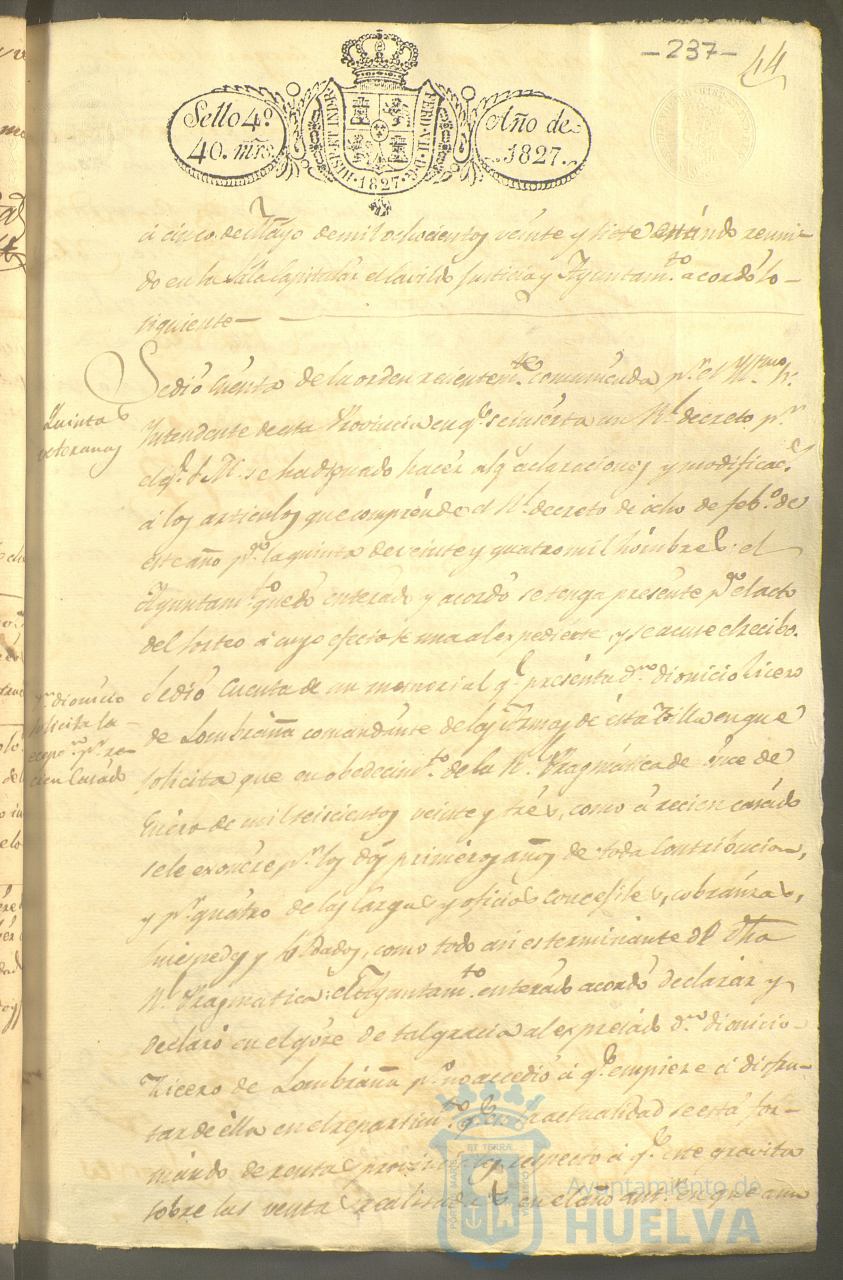 -237-
44
Sello 4º
40. mrs
HISP. ET IND. R.
FERD. VII. D. G.
1827
Año de
1827.
á cinco de Mayo de mil ochocientos veinte y siete estándo reuni-
do en la Sala Capitular el Cavildo Justicia y Ayuntam.to acordó lo
siguiente
Quintas
veteranas
Se dió Cuenta de la orden recientem.te comunicada p.r el
Intendente de esta Provincia en q.e se inserta un R.l decreto p.r
el q.e S. M. se ha dignado hacér alg.s aclaraciones y modificac.s
á los articulos que comprénde el R.l decreto de ocho de feb.o de
este año p.a la quinta de veinte y quatro mil hómbres: el
Ayuntam.to quedó enterado y acordó se tenga presente p.a el acto
del sorteo á cuyo efecto se una al expediente, y se acuse el recibo.
D.n dionicio
solicita la
p.r re-
cien Casádo
Se dió Cuenta de un memorial q.e presénta d.n dionicio Vicero
de Lombráña comandánte de las ármas de ésta Villa en que
solicita que en obedecim.to de la R.l Pragmática de ónce de
Enéro de mil seiscientos veinte y trés, como á recien casádo
se le exonere p.r los dos priméros años de toda Contribucion,
y p.r quátro de las Cargas y oficios Concejiles, cobránzas,
huéspedes y soldados, como todo asi es terminante dha
R.l Pragmatica: el Ayuntam.to enterádo acordó declarár y
declaró en el góze de tal gracia al expresádo d.n dionicio
Vicero de Lombráña p.o no accedió á q.e empieze á disfru-
tar de élla en el repartim.to q.e en la actualidad se está for-
mándo de rentas provinciales respecto á q.e este gravita
sobre las ventas realisadas en el año ant.r en que aun
PORTUS MARIS
ET TERRÆ
CUSTODIA
Ayuntamiento de
HUELVA